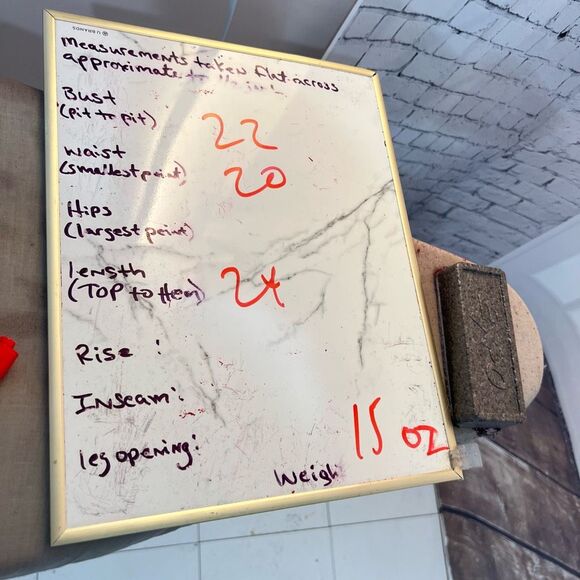 U BRANDS
Measurements taken flat across
approximate to the inch
Bust
(pit to pit) 22
waist
(smallest point) 20
Hips
(largest point)
length
(TOP to Hem) 24
Rise :
INseam:
leg opening:
15 oz
Weigh